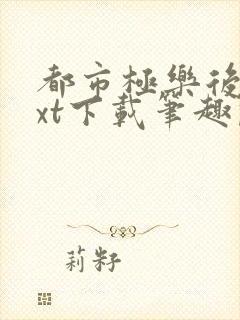 都市極樂後
xt下載筆趣
莉籽